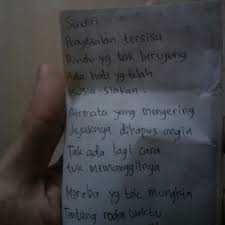 Sendiri
Penyesalan tersisa
Rindu yg tak berujung
Ada hati yg telah
kusia siakan.
Airmata yang mengering
Jejaknya dihapus angin
Tak ada lagi cara
tuk memanggilnya
Mereka yg tak mungkin
Tentang roda waktu